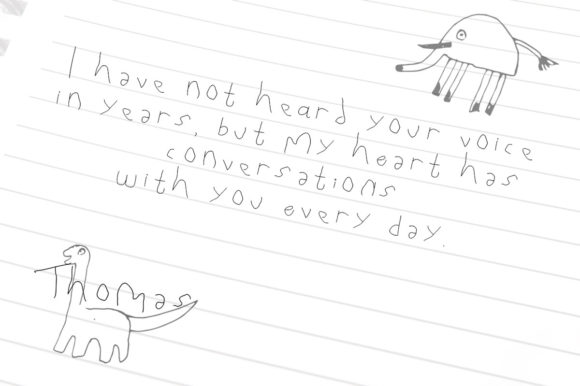 I have not heard your voice
in years, but my heart has
conversations
with you every day.
Thomas